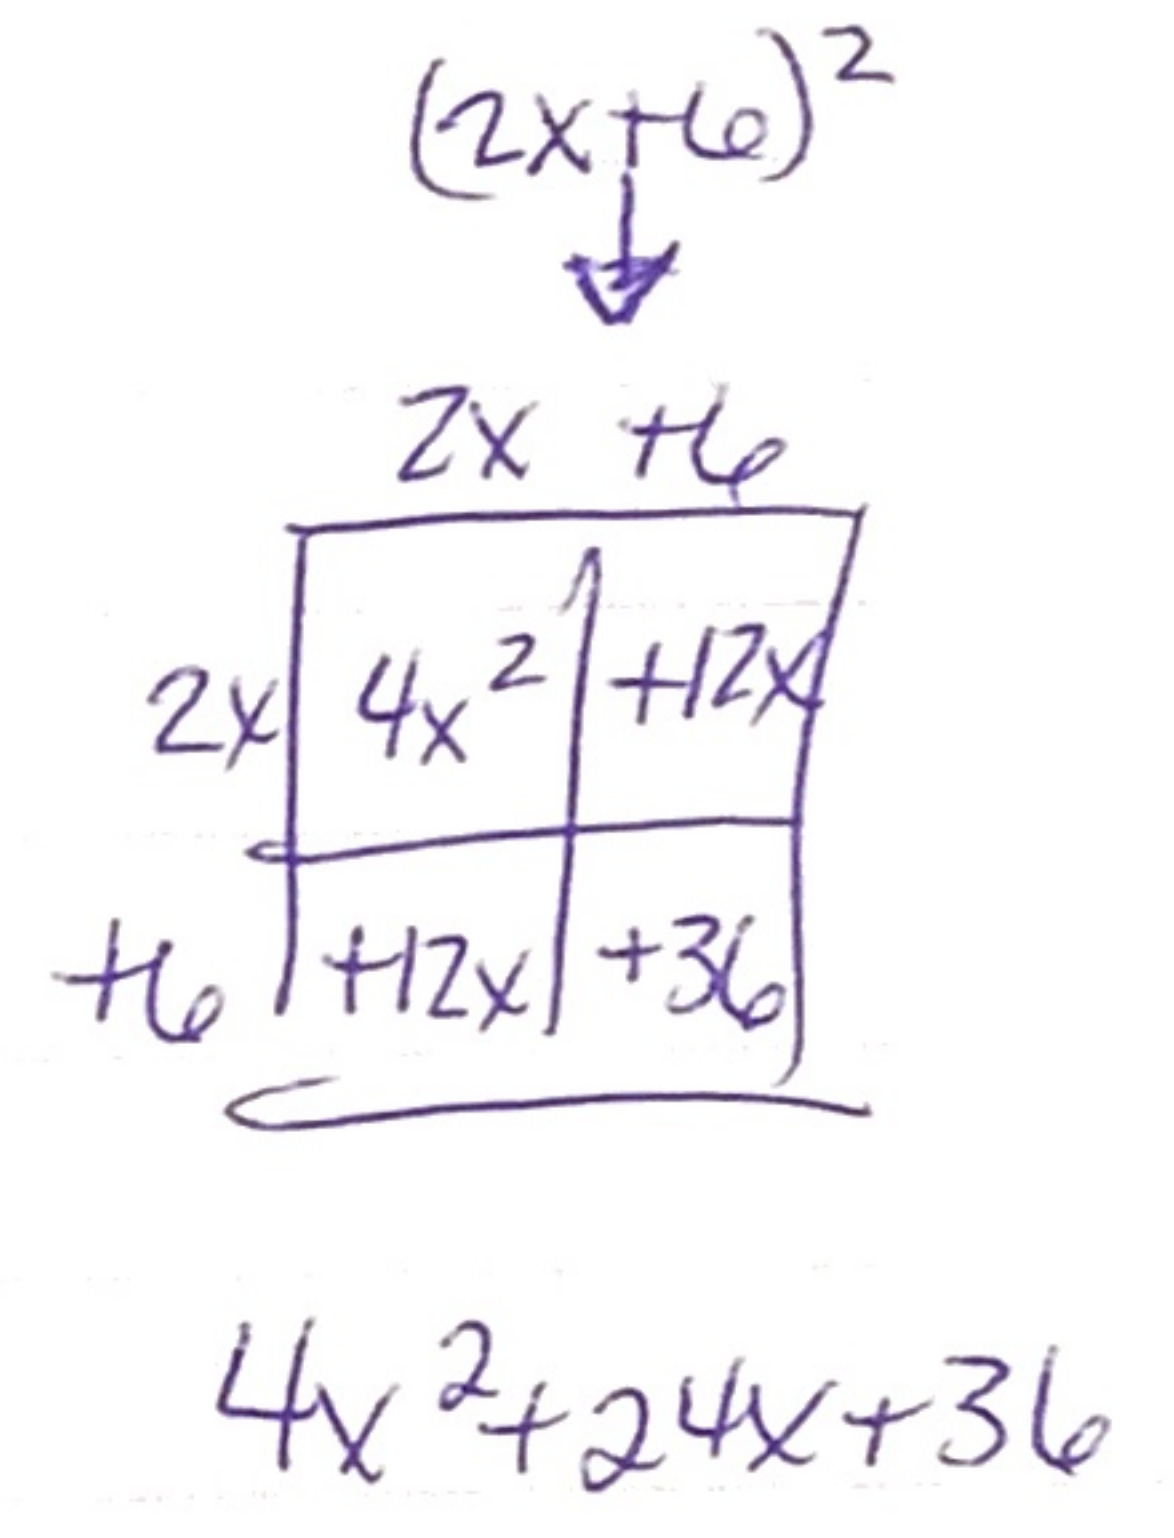 (2x+6)²
2x +6
2x 4x² +12x
+6 +12x +36
4x²+24x+36